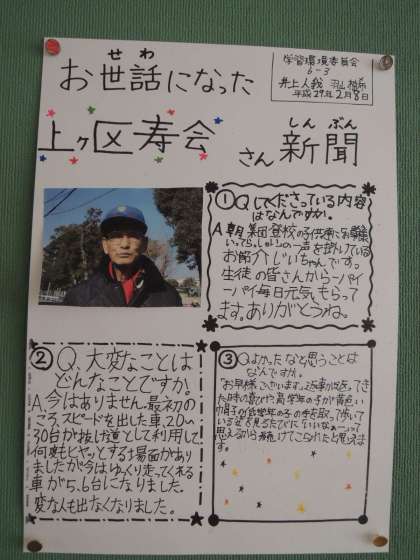 学習環境委員会
6-3
平成29年2月8日
せわ
お世話になった
上ヶ区寿会
さん
しんぶん
新聞
①Q.してくださっている内容
はなんですか。
A.朝、集団登校の子供達に
いってらっしゃいの一声を掛けている
おじいちゃんです。
生徒の皆さんから一パイ
一パイ毎日元気もらって
ます。ありがとうね。
②Q.大変なことは
どんなことですか。
A.今はありません。最初の
ころ、スピードを出した車、20〜
30台が抜け道として利用して
何度もヒヤッとする場面があり
ましたが今はゆっくり走ってくれる
車が5.6台になりました。
変な人も出なくなりました。
③Q.よかったなと思うことは
なんですか。
"お早様ございます。"
た時の喜びや高学年の子が黄色い
帽子の低学年の子の手を取って歩いて
いる姿を見るたびにいいなぁーって
思えるから続けてこられたと思えま
す。